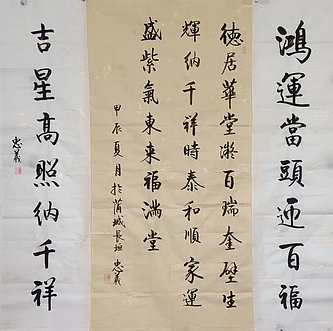 鴻運當頭迎百福
德居華堂凝百瑞奎壁生
輝納千祥時泰和順家運
盛紫氣東来福滿堂
甲辰夏月於蒲城長垣忠義
吉星高照納千祥
忠義